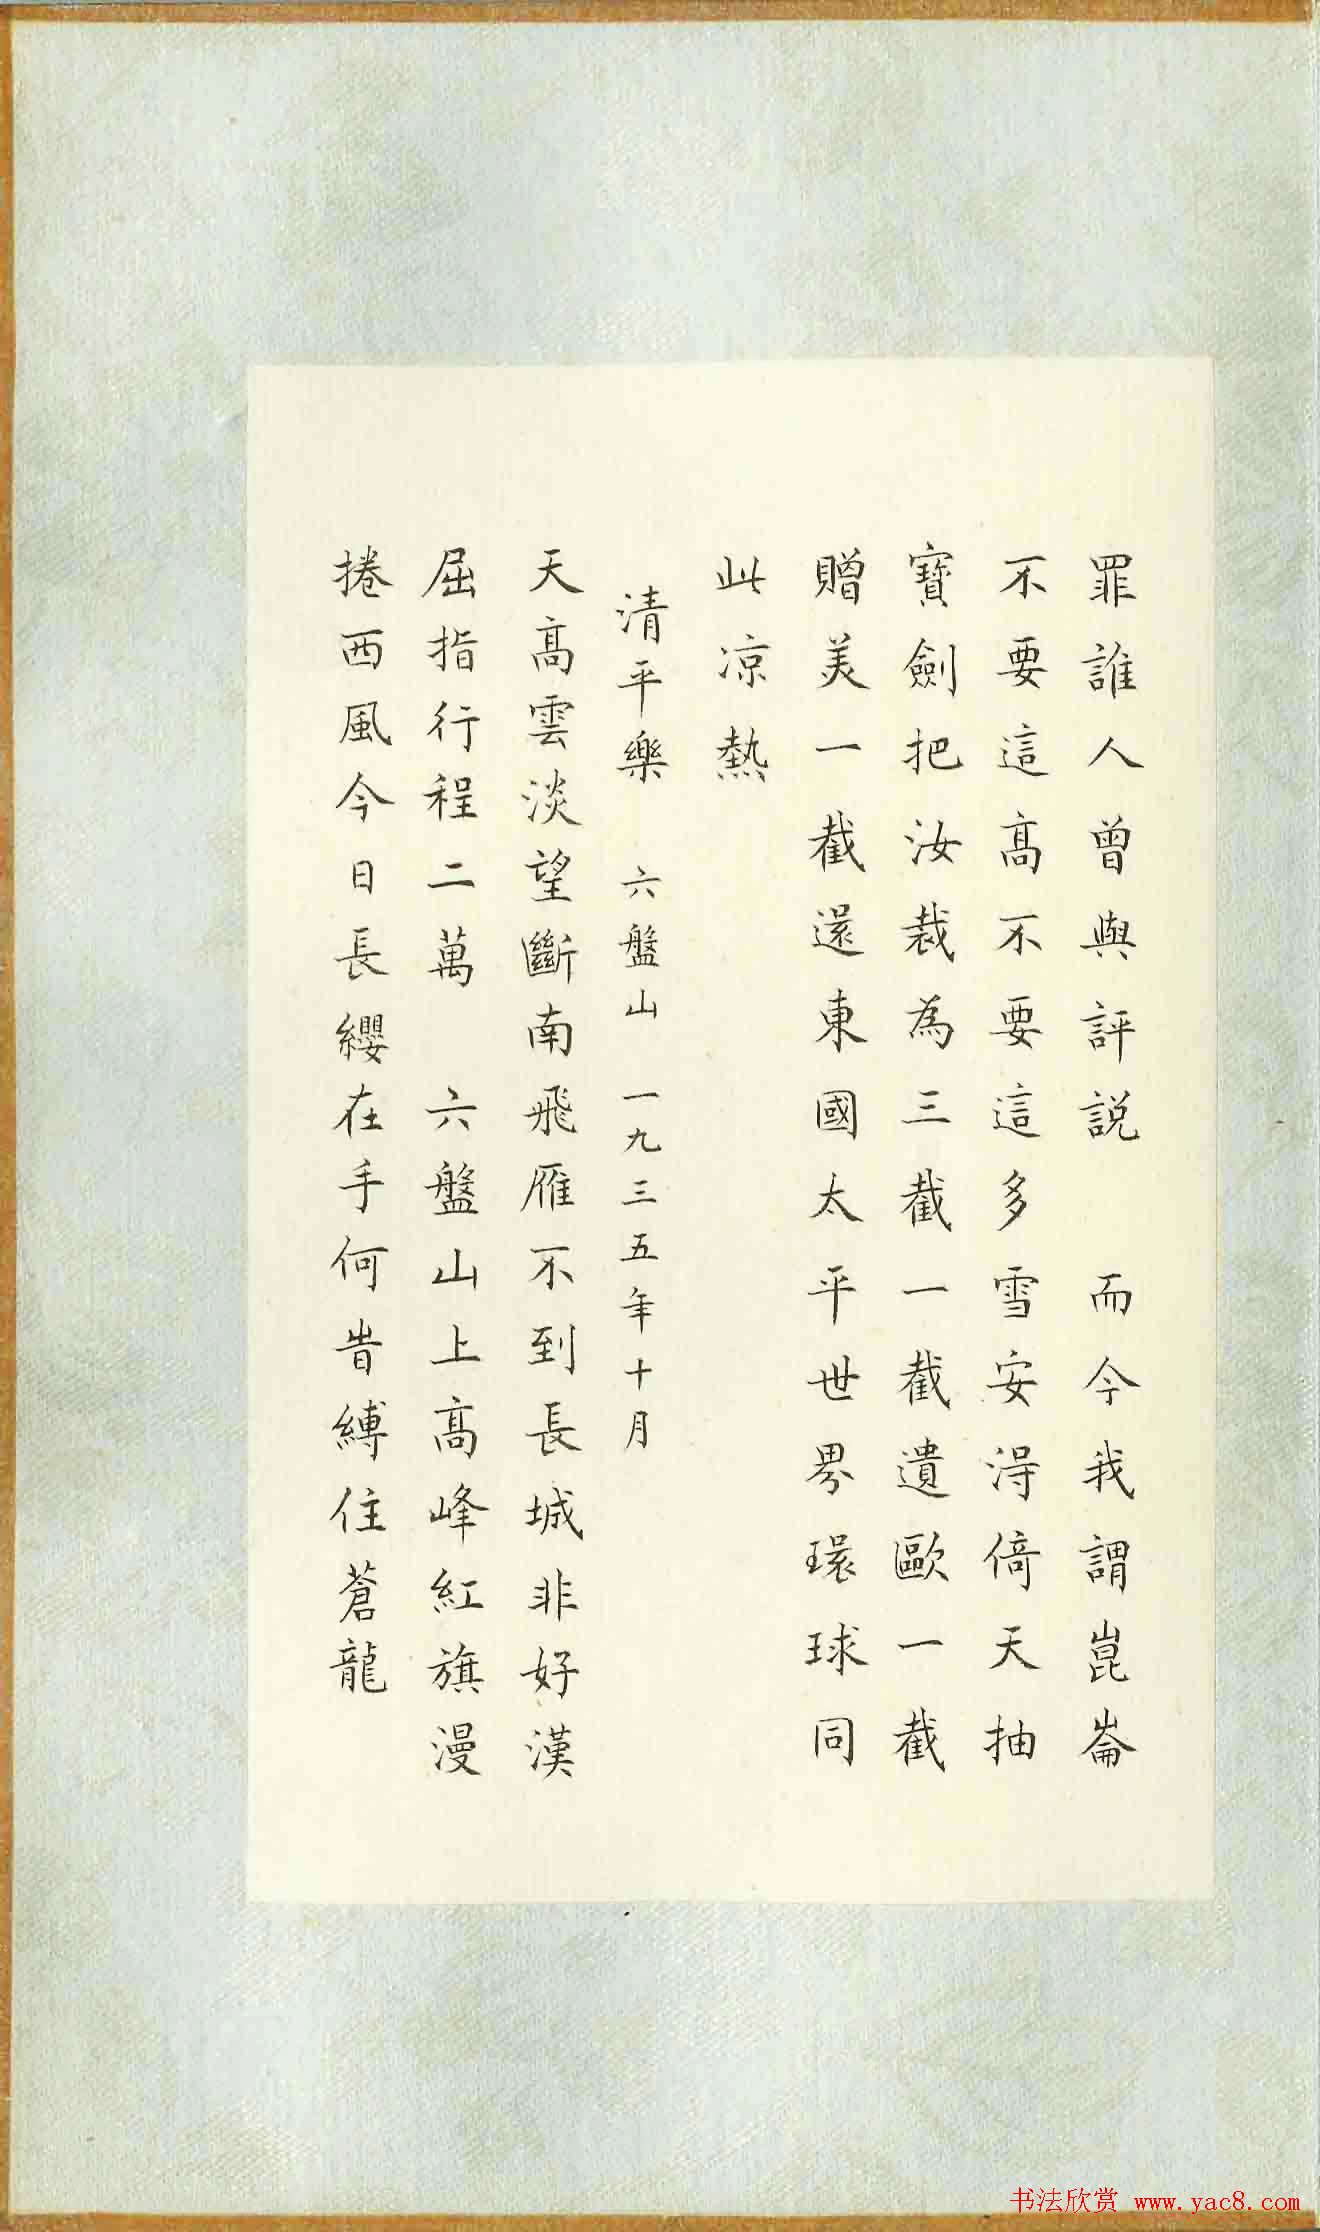 罪誰人曾與評説　而今我謂崑崙
不要這高不要這多雪安得倚天抽
寶劍把汝裁為三截一截遺歐一截
贈美一截還東國太平世界環球同
此凉熱
清平樂　六盤山　一九三五年十月
天高雲淡望斷南飛雁不到長城非好漢
屈指行程二萬　六盤山上高峰紅旗漫
捲西風今日長纓在手何旹縛住蒼龍
书法欣赏 www.yac8.com